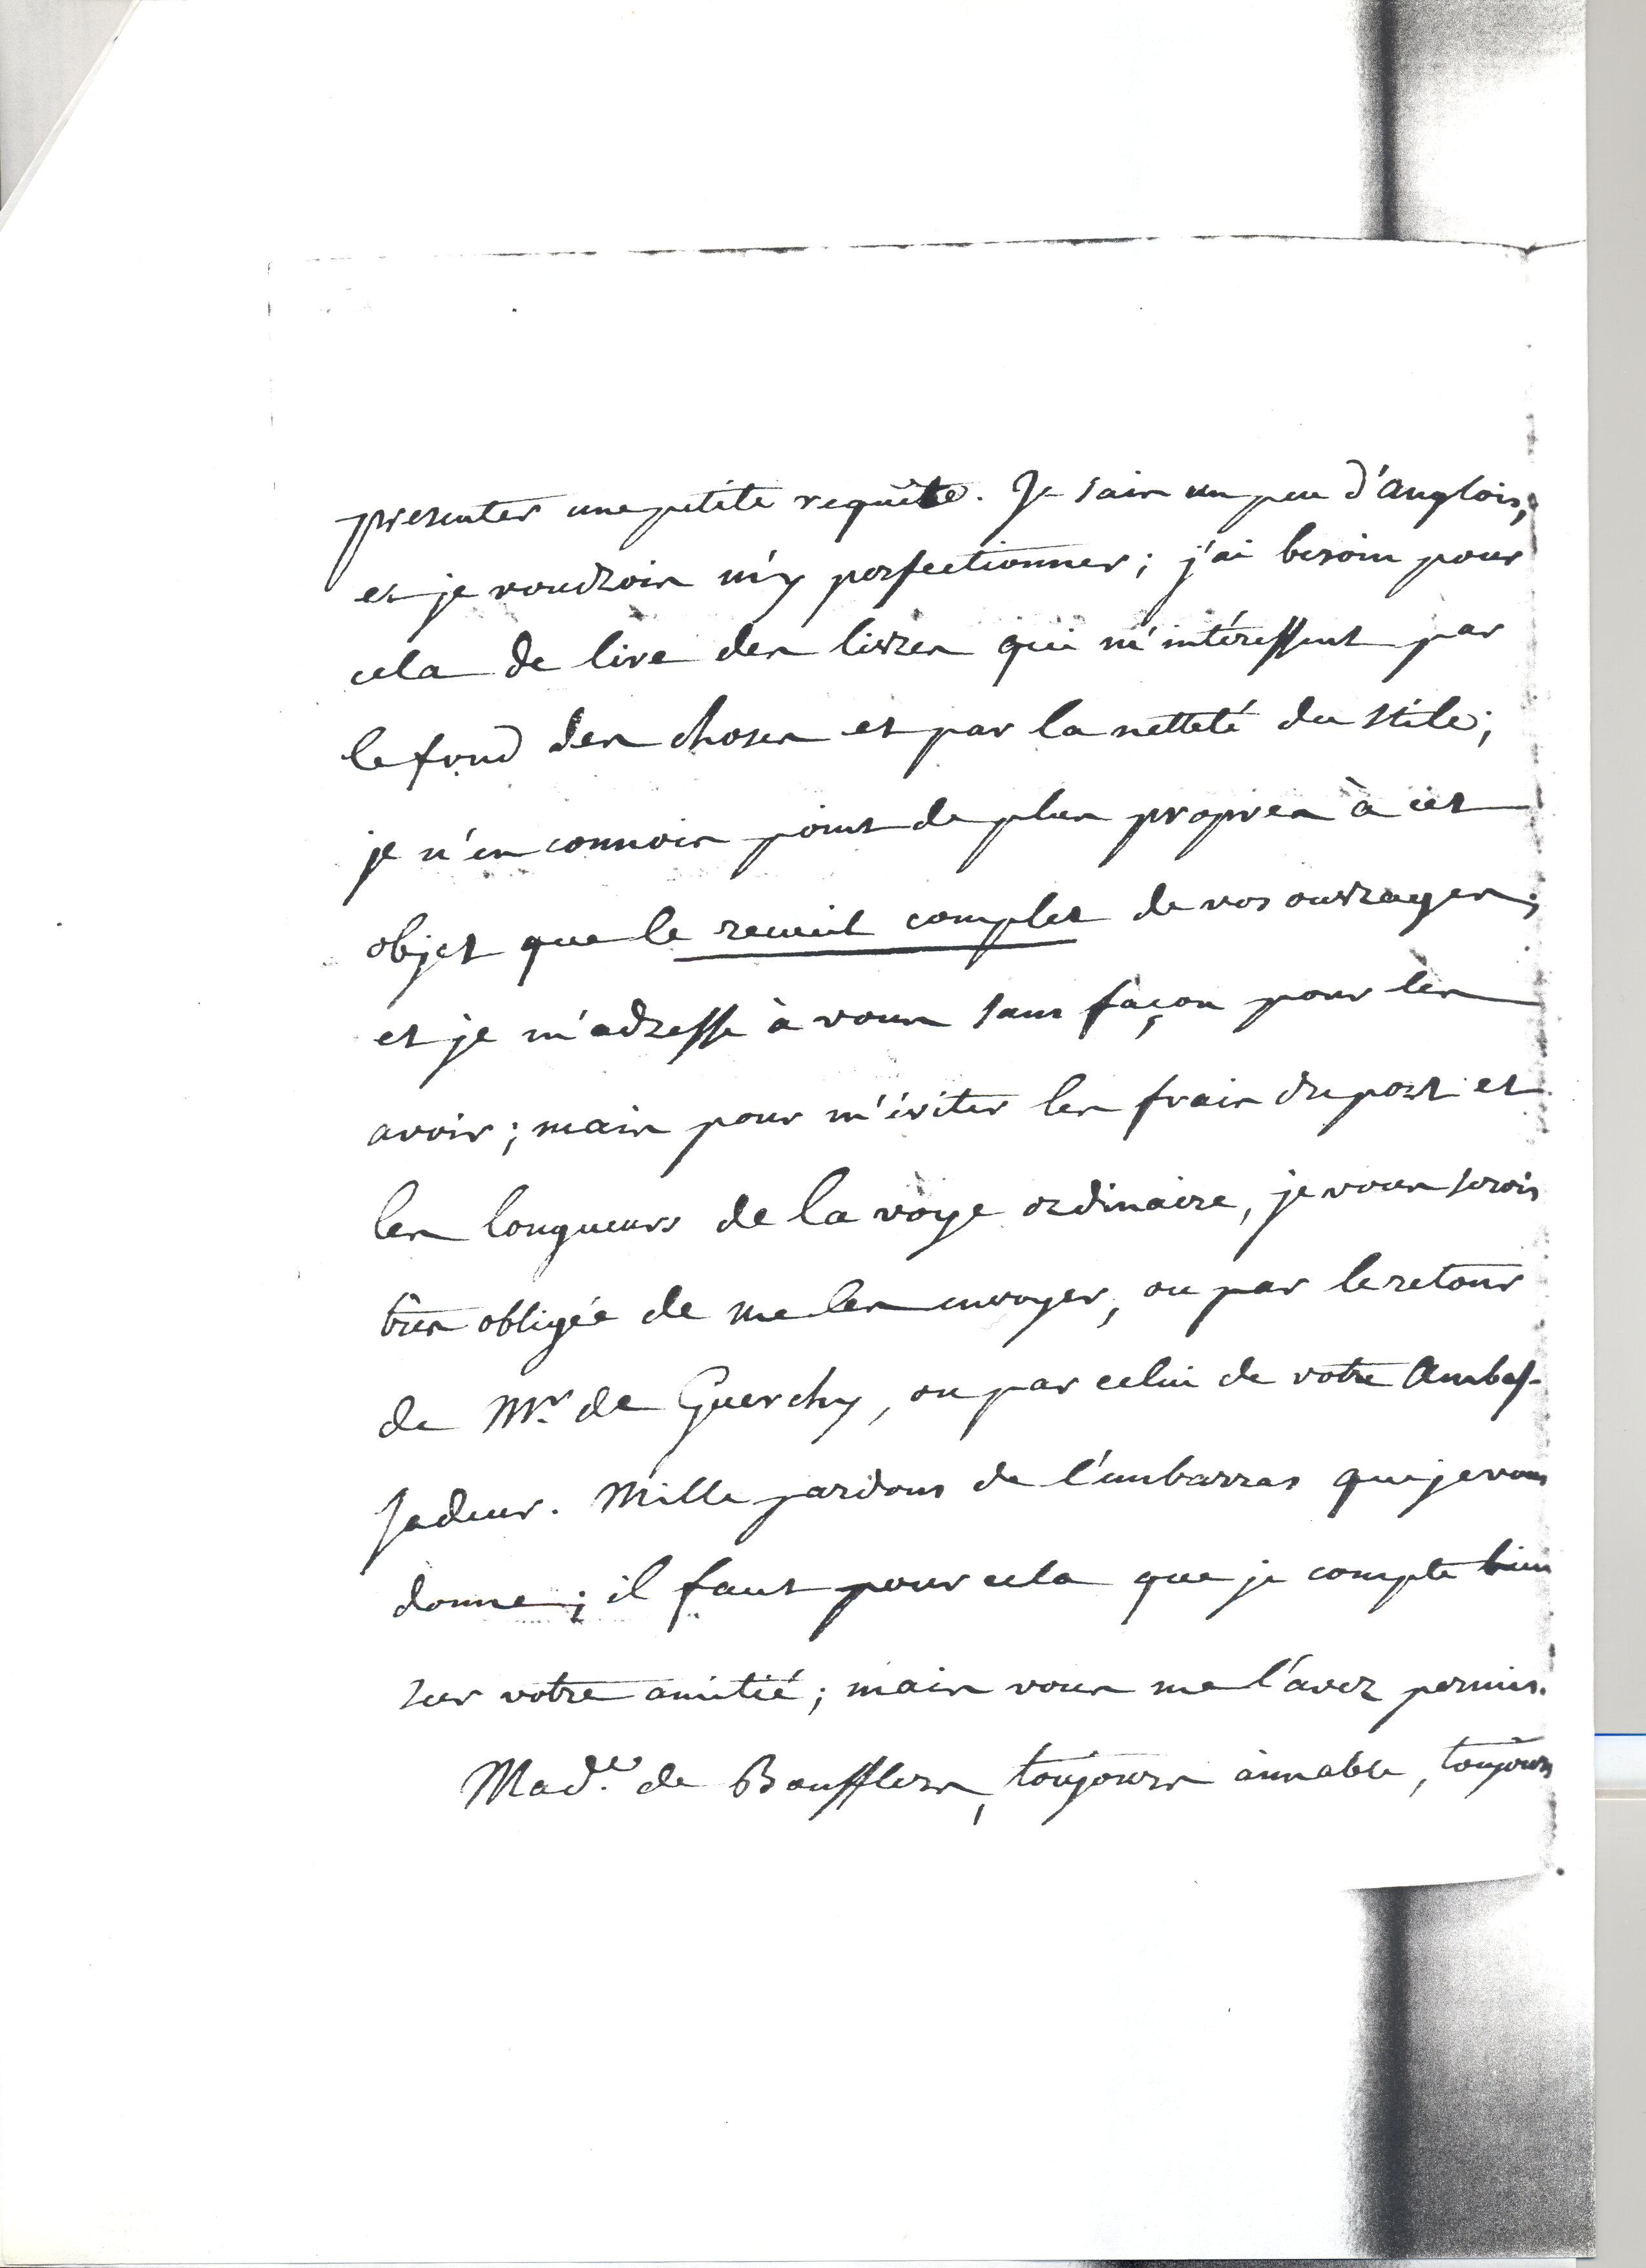 presenter une petite requête. Je sais un peu d'anglois,
et je voudrois m'y perfectionner; j'ai besoin pour
cela de lire des livres qui m'intéressent par
le fond des choses et par la netteté du stile;
je n'en connois point de plus propres à cet
objet que le recueil complet de vos ouvrages;
et je m'adresse à vous sans façon pour les
avoir; mais pour m'éviter les frais du port et
les longueurs de la voye ordinaire, je vous serois
très obligée de me les envoyer, ou par le retour
de Mr. de Guerchy, ou par celui de votre Ambas-
sadeur. Mille pardons de l'embarras que je vous
donne; il faut pour cela que je compte bien
sur votre amitié; mais vous me l'avez permis.
Made. de Boufflers, toujours aimable, toujours